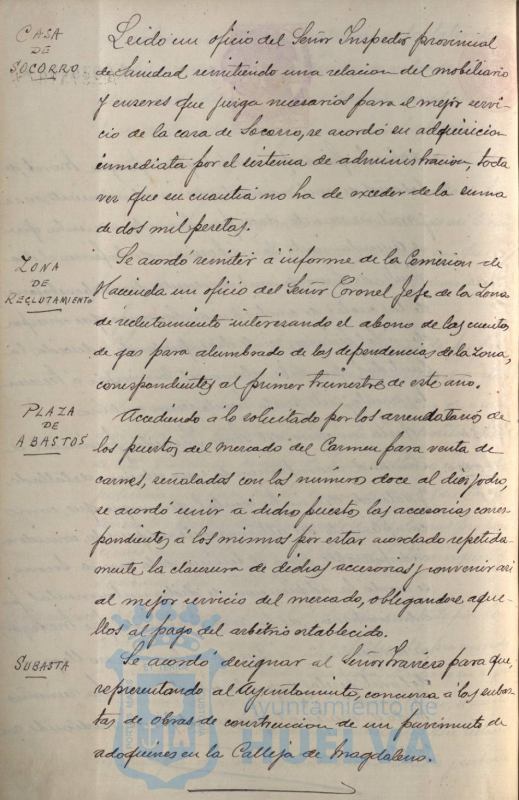 CASA
DE
SOCORRO
Leido un oficio del Señor Inspector provincial
de Sanidad remitiendo una relacion del mobiliario
y enseres que juzga necesarios para el mejor servi-
cio de la casa de Socorro, se acordó su adquisicion
inmediata por el sistema de administracion, toda
vez que su cuantia no ha de exceder de la suma
de dos mil pesetas.
ZONA
DE
RECLUTAMIENTO
Se acordó remitir á informe de la Comision de
Hacienda un oficio del Señor Coronel Jefe de la Zona
de reclutamiento interesando el abono de las cuentas
de gas para alumbrado de las dependencias de la Zona,
correspondientes al primer trimestre de este año.
PLAZA
DE
ABASTOS
Accediendo á lo solicitado por los arrendatarios de
los puestos del mercado del Carmen para venta de
carnes, señalados con los números doce al dieziocho,
se acordó unir á dichos puestos las accesorias corres-
pondientes á los mismos por estar acordado repetida-
mente la clausura de dichas accesorias y convenir asi
al mejor servicio del mercado, obligandose aque-
llos al pago del arbitrio establecido.
SUBASTA
Se acordó designar al Señor Traviero para que,
representando al Ayuntamiento, concurra á las subas-
tas de obras de construccion de un pavimento de
adoquines en la Calleja de Magdaleno.
Ayuntamiento de
HUELVA